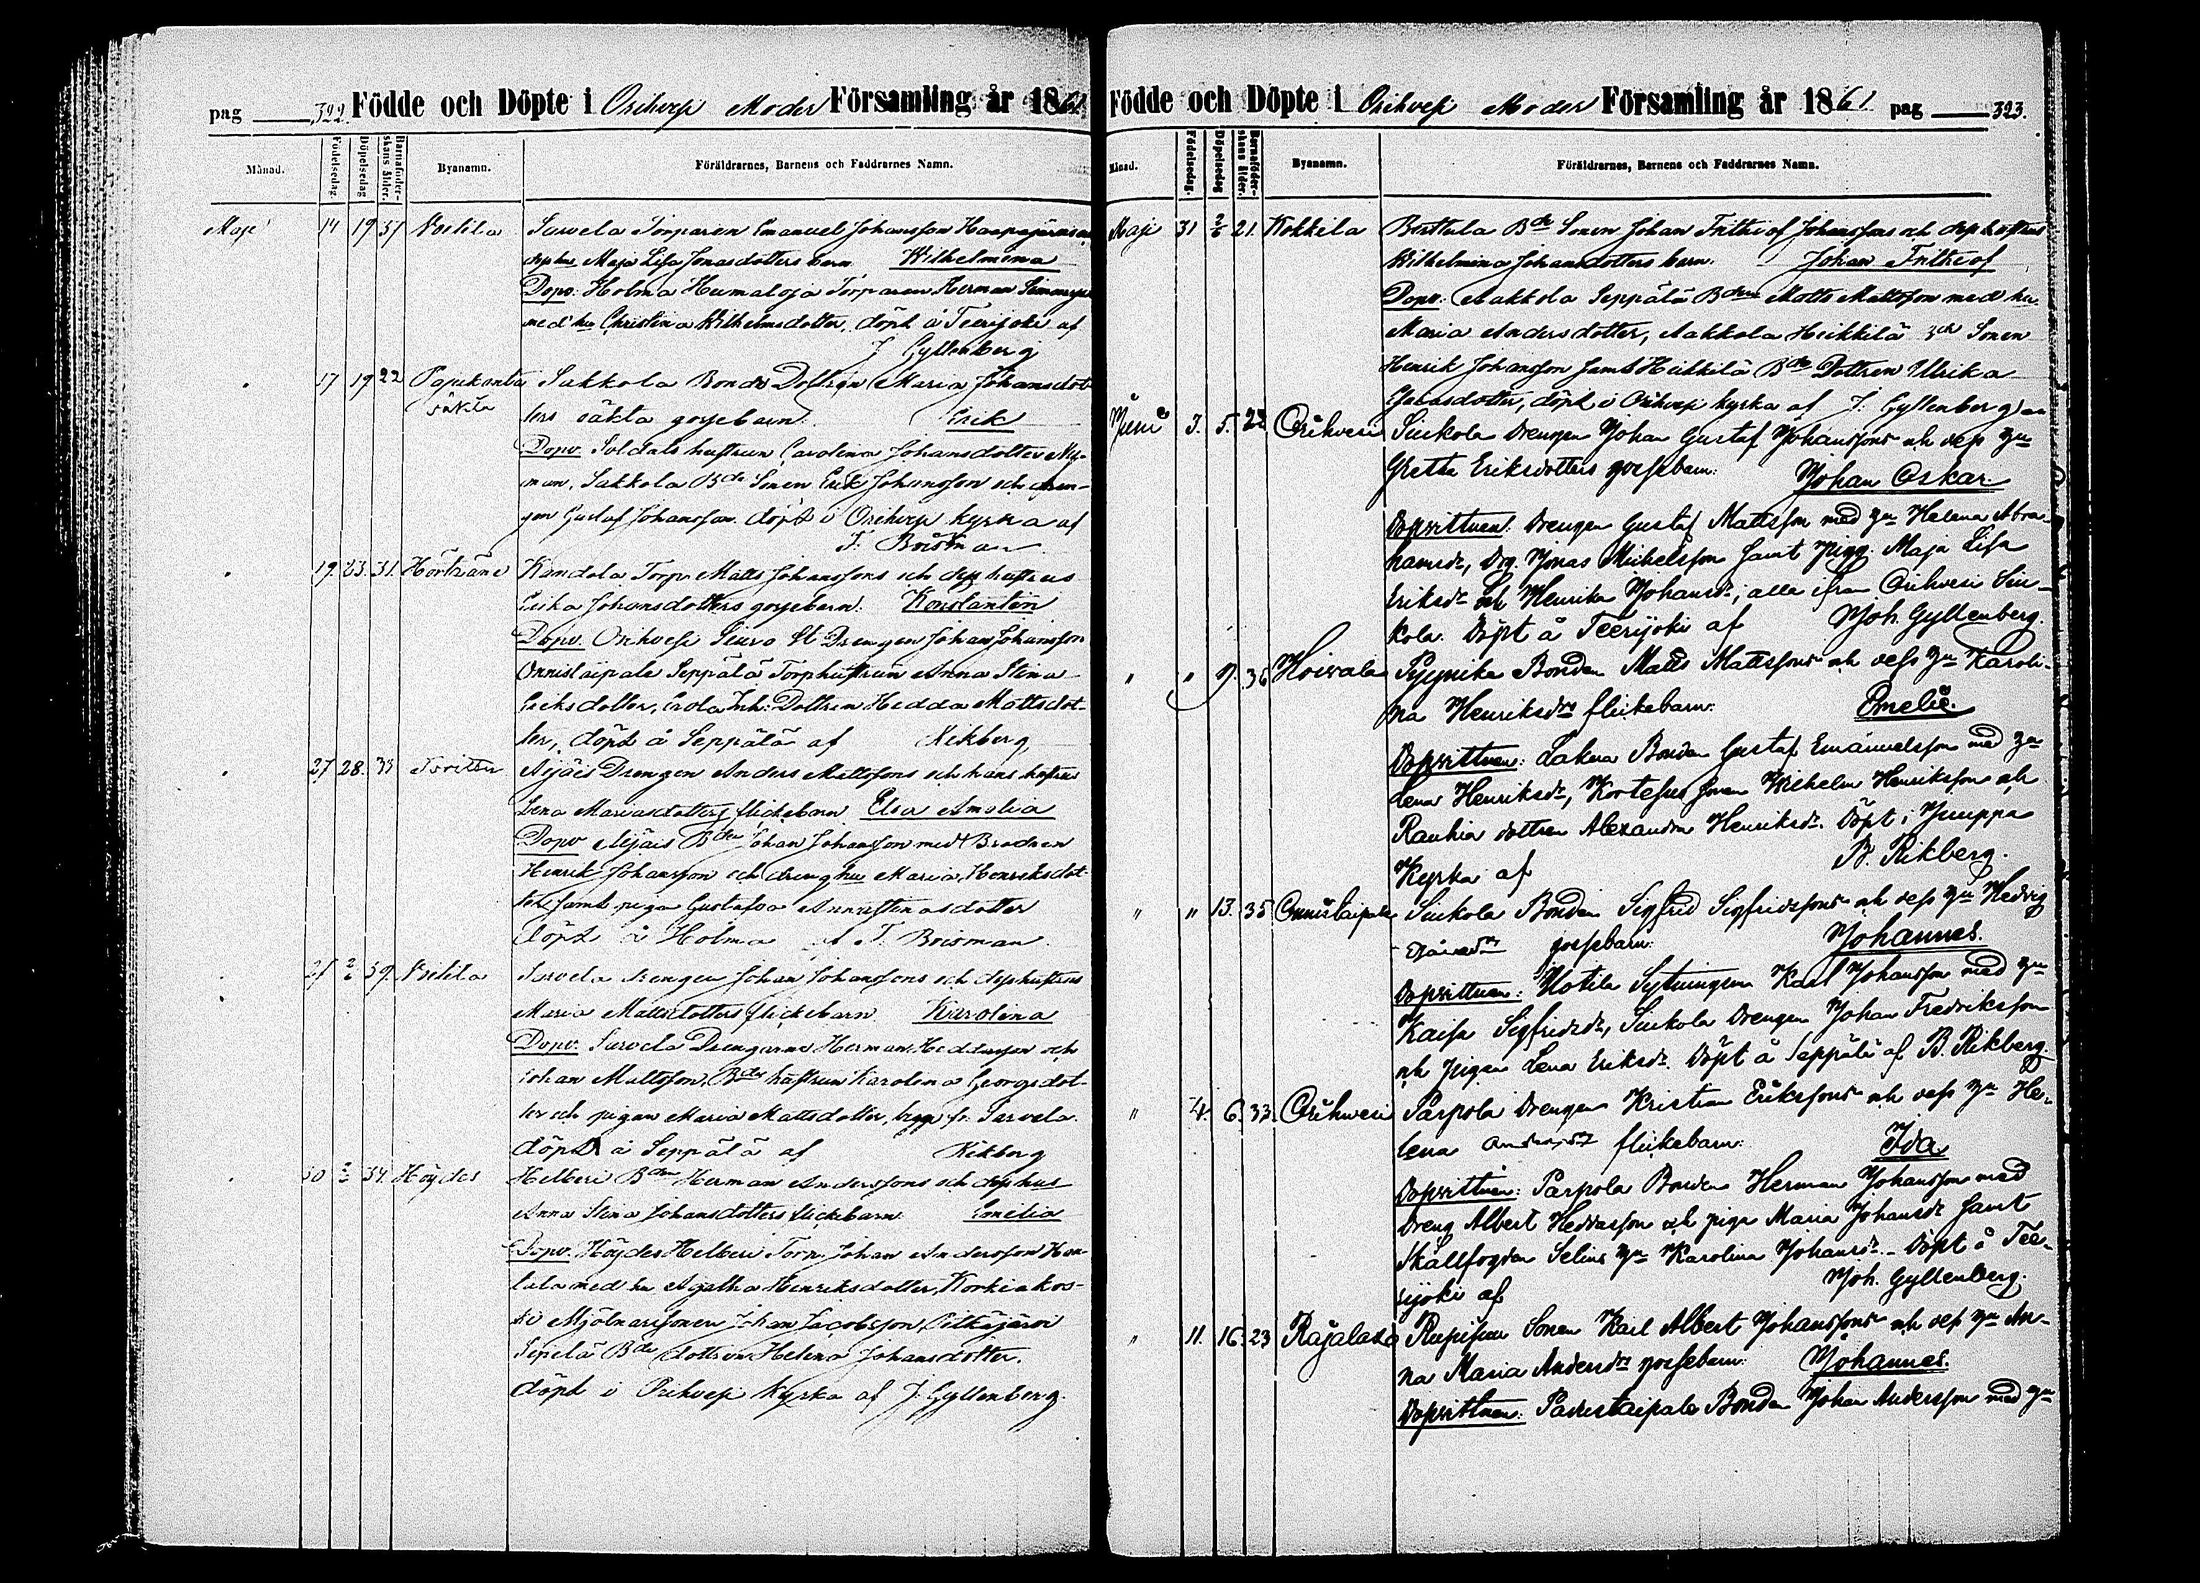 pag 322. Födde och Döpte i Orihvesi Moder Församling år 1861.
Månad. Födelsedag Döpelsedag Barnaföderskans ålder. Byanamn. Föräldrarnes, Barnens och Faddrarnes Namn.
Maji 14 19 37 Voitila Sarvela Torparen Emanuel Johansson
dess hu Maja Lisa Jonasdotters barn Wilhelmina
Dopv: Holma Humaloja Torparen Herman
med hu Christina Wilhelmsdotter, döpt å Teerijoki af
J Gyllenberg
17 19 22 Pajukanta Sakkola Bonde Dottren Maria Johansdot
oäkta ters oäkta gossebarn Erik
Dopv. Soldats hustrun Carolina Johansdotter Ny-
man, Sakkola Bde Sonen Erik Johansson och dren-
gen Gustaf Johansson döpt i Orihvesi kyrka af
T. Boisman
19. 23. 31. Kandola Torp. Matts Johanssons och dess hustrus
Erika Johansdotters gossebarn. Konstantin
Dopv. Orihvesi Drengen Johan Johansson
Onnistaipale Seppälä Torphustrun Anna Stina
Eriksdotter, Dottren Hedda Mattsdot-
ter, döpt å Seppälä af Rikberg
27 28. 33 Äijäis Drengen Anders Mattssons och hans hustrus
Lena Mariasdotters flickebarn Elsa Amalia
Dopv Äijäis Bden Johan Johansson med Brodren
Henrik Johansson och dreng hu Maria Henriksdot-
ter samt pigan Gustafva Annastinasdotter
döpt å Holma af T. Boisman
27 2/6 39. Voitila Sarvela Drengen Johan Johanssons och dess hustrus
Maria Mattsdotters flickebarn Karolina
Dopv. Sarvela Drengarne Herman Heddasson och
Johan Mattsson, Bde hustrun Karolina Georgsdot-
ter och pigan Maria Mattsdotter, fr. Sarvela.
döpt å Seppälä af Rikberg
30 2/6 34. Höydes Helberi Bden Herman Anderssons och dess hus
Anna Stina Johansdotters flickebarn Emelia
Dopv. Höydes Helberi Torp. Johan Andersson
med hu Agatha Henriksdotter, Korkiakos-
ki Mjölnaresonen Johan Jacobsson, Pitkäjärvi
Sepelä Bde dottren Helena Johansdotter.
döpt i Orihvesi kyrka af J. Gyllenberg.
Födde och Döpte i Orihvesi Moder Församling år 1861. pag 323.
Månad. Födelsedag. Döpelsedag Barnaföderskans ålder. Byanamn. Föräldrarnes, Barnens och Faddrarnes Namn.
Maji 31 2/6 21. Kokkila Berttula Bde Sonen Johan Frithiof Johanssons och dess hustrus
Wilhelmina Johansdotters barn. Johan Frithiof
Dopv: Aakkola Seppälä Bden Matts Mattsson med hu
Maria Andersdotter, Aakkola Heikkilä Bde Sonen
Henrik Johansson samt Heikkilä Bde Dottren Ulrika
Jonasdotter, döpt i Orihvesi kyrka af J. Gyllenberg
Juni 3. 5. 22 Orihvesi Siukola Drengen Johan Gustaf Johanssons och dess hu
Gretha Eriksdotters gossebarn: Johan Oskar.
Dopvittnen: Drengen Gustaf Mattsson med hu Helena Abra-
hamsdr, Drg. Jonas Michelsson samt pigg. Maja Lisa
Eriksdr och Henrika Johansdr, alla ifrån Orihvesi Siu-
kola. Döpt å Teerijoki af Joh. Gyllenberg.
" " 9. 36 Koivala Pyynika Bonden Matts Mattssons och dess hu Karoli-
na Henriksdrs flickebarn: Emelie.
Dopvittnen: Lakera Bonden Gustaf Emanuelsson med hu
Lena Henriksdr, Kortesus sonen Wilhelm Henriksson och
Rauhia dottren Alexandra Henriksdr. Döpt i Juuppa
Kyrka af B. Rikberg.
" " 13. 35 Onnistaipale Siukola Bonden Sigfrid Sigfridssons och dess hu Hedvig
gossebarn: Johannes.
Dopvittnen: Uotila Sytningen Karl Johansson med hu
Kaisa Sigfridsdr, Siukola Drengen Johan Fredriksson
och pigan Lena Eriksdr. Döpt å Seppälä af B. Rikberg.
" 4. 6. 33. Orihvesi Parpola Drengen Kristian Erikssons och dess hu He-
lena flickebarn: Ida
Dopvittnen: Parpola Bonden Herman Johansson med
Dreng Albert Heddasson och piga Maria Johansdr samt
Skallfogden Selins hu Karolina Johansdr. – Döpt å Tee-
rijoki af Joh. Gyllenberg.
" 11. 16. 23 Rajalaks Sonen Karl Albert Johanssons och dess hu An-
na Maria Andersdrs gossebarn: Johannes.
Dopvittnen: Bonden Johan Andersson med hu